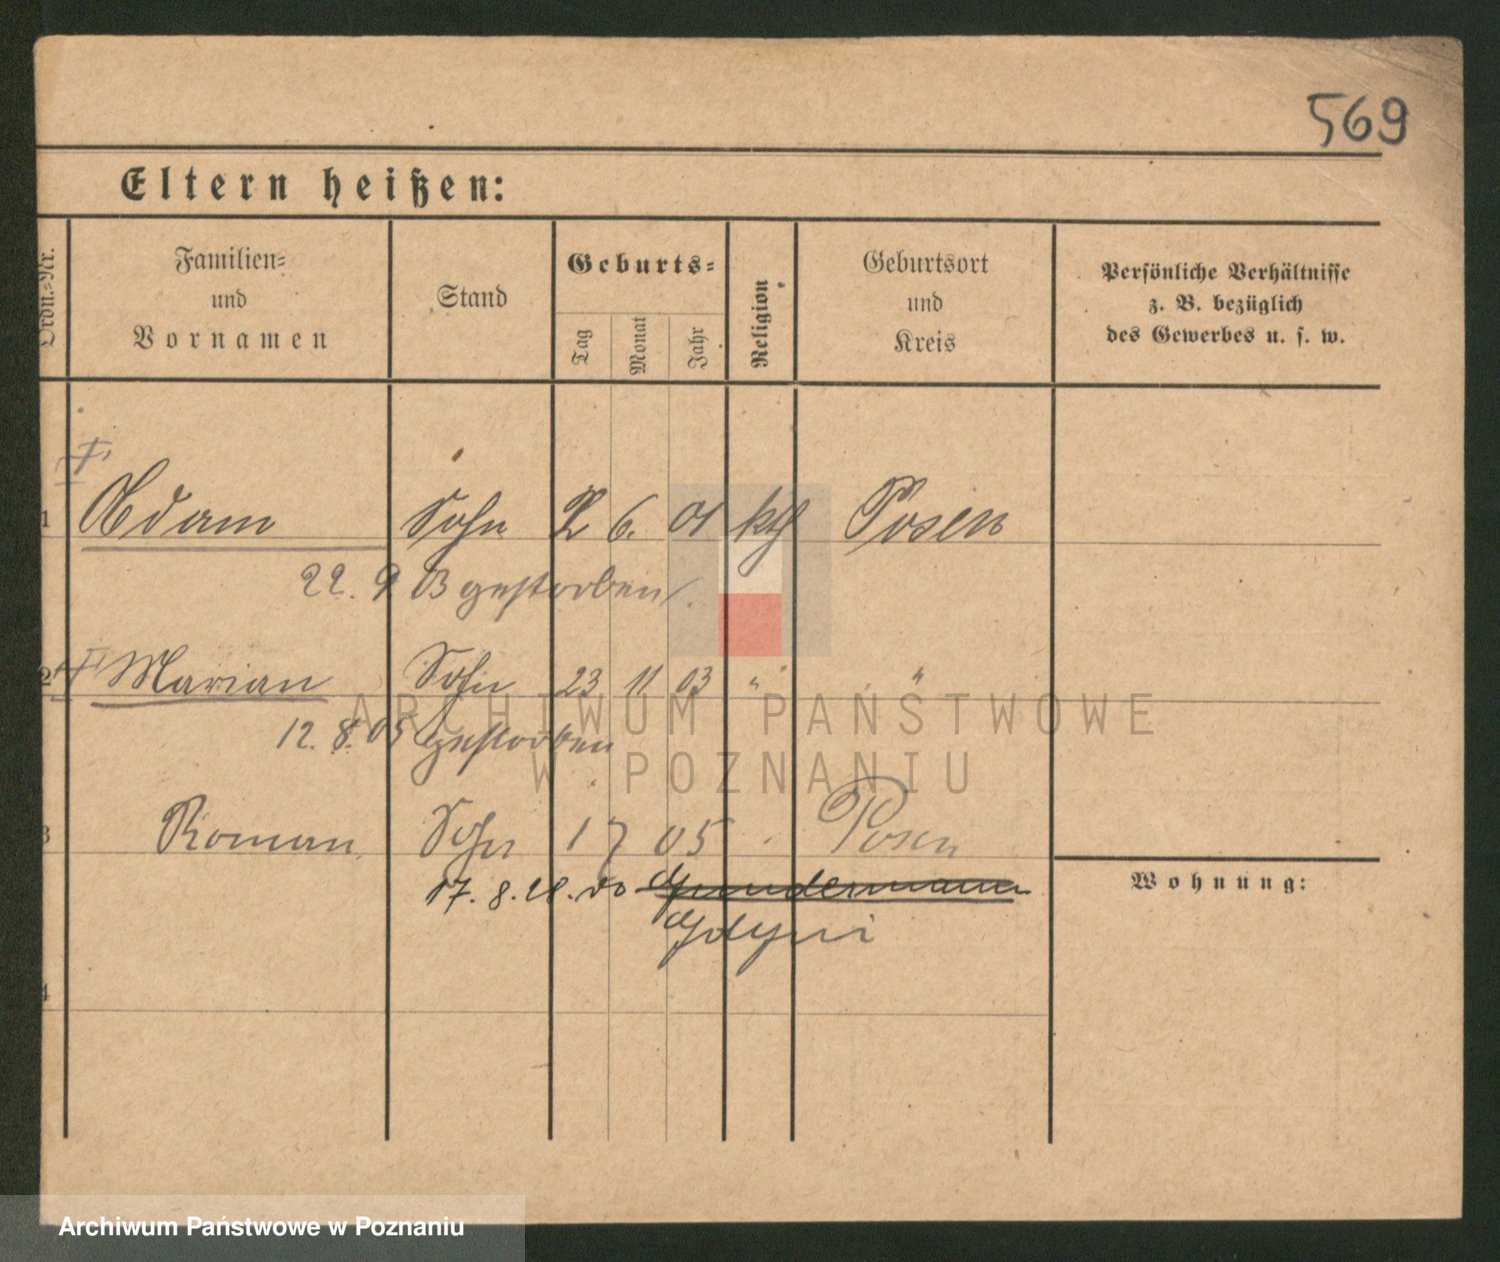 569
Eltern heißen:
Ordn.-Nr.
Familien-
und
Vornamen
Stand
Geburts-
Tag
Monat
Jahr
Religion
Geburtsort
und
Kreis
Persönliche Verhältnisse
z. B. bezüglich
des Gewerbes u. s. w.
1 Adam Sohn 2 6. 01 kth Posen
22. 9 03 gestorben.
2 Marian Sohn 23 11 03 " "
12. 8. 05 gestorben
3 Roman Sohn 1 7 05 Posen
17. 8. 28. do
Gdyni
Wohnung:
4
ARCHIWUM PAŃSTWOWE
W POZNANIU
Archiwum Państwowe w Poznaniu